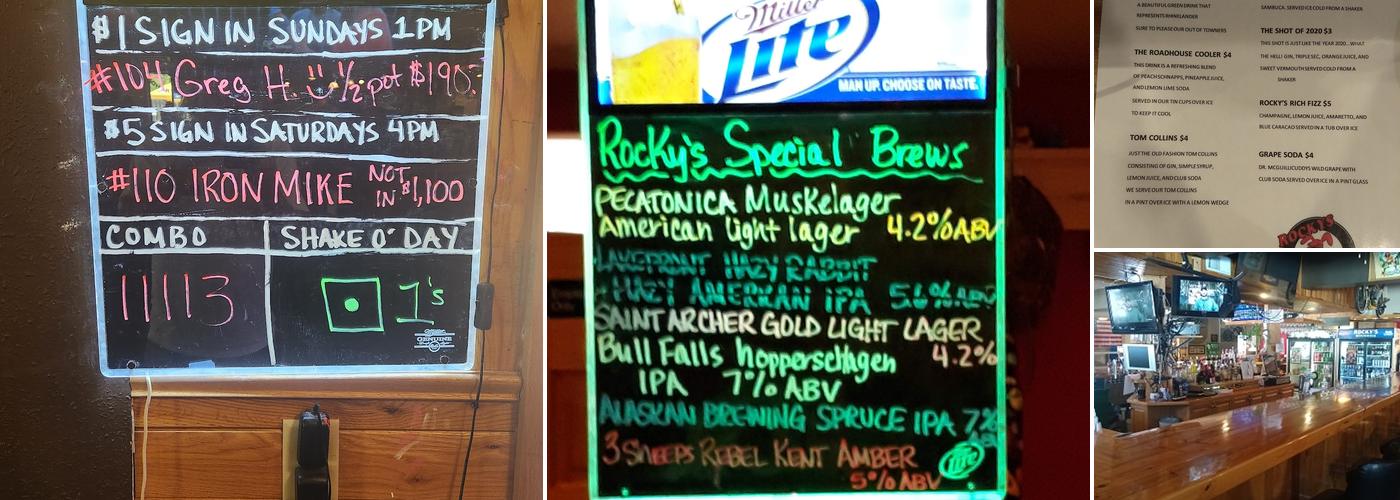 $1 SIGN IN SUNDAYS 1PM
#104 Greg H. 1/2 pot $190
$5 SIGN IN SATURDAYS 4PM
#110 IRON MIKE NOT IN $1,100
COMBO
SHAKE O' DAY
11113
1's
GENUINE
Miller
Lite
MAN UP. CHOOSE ON TASTE.
Rocky's Special Brews
PECATONICA Muskelager
American light lager 4.2% ABV
LAKEFRONT HAZY RABBIT
HAZY AMERKAN IPA 5.6% ABV
SAINT ARCHER GOLD LIGHT LAGER
4.2%
Bull Falls hopperschlagen
IPA 7% ABV
ALASKAN BREWING SPRUCE IPA 7%
3 SHEEPS REBEL KENT AMBER
5% ABV
Lite
A BEAUTIFUL GREEN DRINK THAT
REPRESENTS RHINELANDER
SURE TO PLEASE OUR OUT OF TOWNERS
THE ROADHOUSE COOLER $4
THIS DRINK IS A REFRESHING BLEND
OF PEACH SCHNAPPS, PINEAPPLE JUICE,
AND LEMON LIME SODA
SERVED IN OUR TIN CUPS OVER ICE
TO KEEP IT COOL
TOM COLLINS $4
JUST THE OLD FASHION TOM COLLINS
CONSISTING OF GIN, SIMPLE SYRUP,
LEMON JUICE, AND CLUB SODA
WE SERVE OUR TOM COLLINS
IN A PINT OVER ICE WITH A LEMON WEDGE
SAMBUCA. SERVED ICE COLD FROM A SHAKER
THE SHOT OF 2020 $3
THIS SHOT IS JUST LIKE THE YEAR 2020...WHAT
THE HELL! GIN, TRIPLE SEC, ORANGE JUICE, AND
SWEET VERMOUTH SERVED COLD FROM A
SHAKER
ROCKY'S RICH FIZZ $5
CHAMPAGNE, LEMON JUICE, AMARETTO, AND
BLUE CARACAO SERVED IN A TUB OVER ICE
GRAPE SODA $4
DR. MCGUILLICUDDYS WILD GRAPE WITH
CLUB SODA SERVED OVER ICE IN A PINT GLASS
ROCKY'S
ROCKY'S